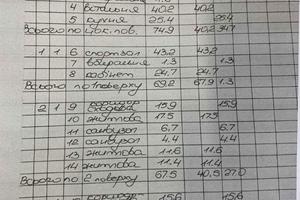 4 40,2 40,2
5 кухня 25,4 25,4
Всього по цок. пов. 74,9 40,2 34,7
1 1 6 спортзал 43,2 43,2
7 вбиральня 1.3 1.3
8 кабінет 24.7 24.7
Всього по 1 поверху 69,2 67,9 1.3
2 1 9 коридор 15,9 15,9
10 житлова 17.5 17.5
11 санвузол 6.7 6.7
12 санвузол 4.4 4.4
13 житлова 11.6 11.6
14 житлова 11.4 11.4
Всього по 2 поверху 67.5 40,5 27.0
коридор 15,6 15,6